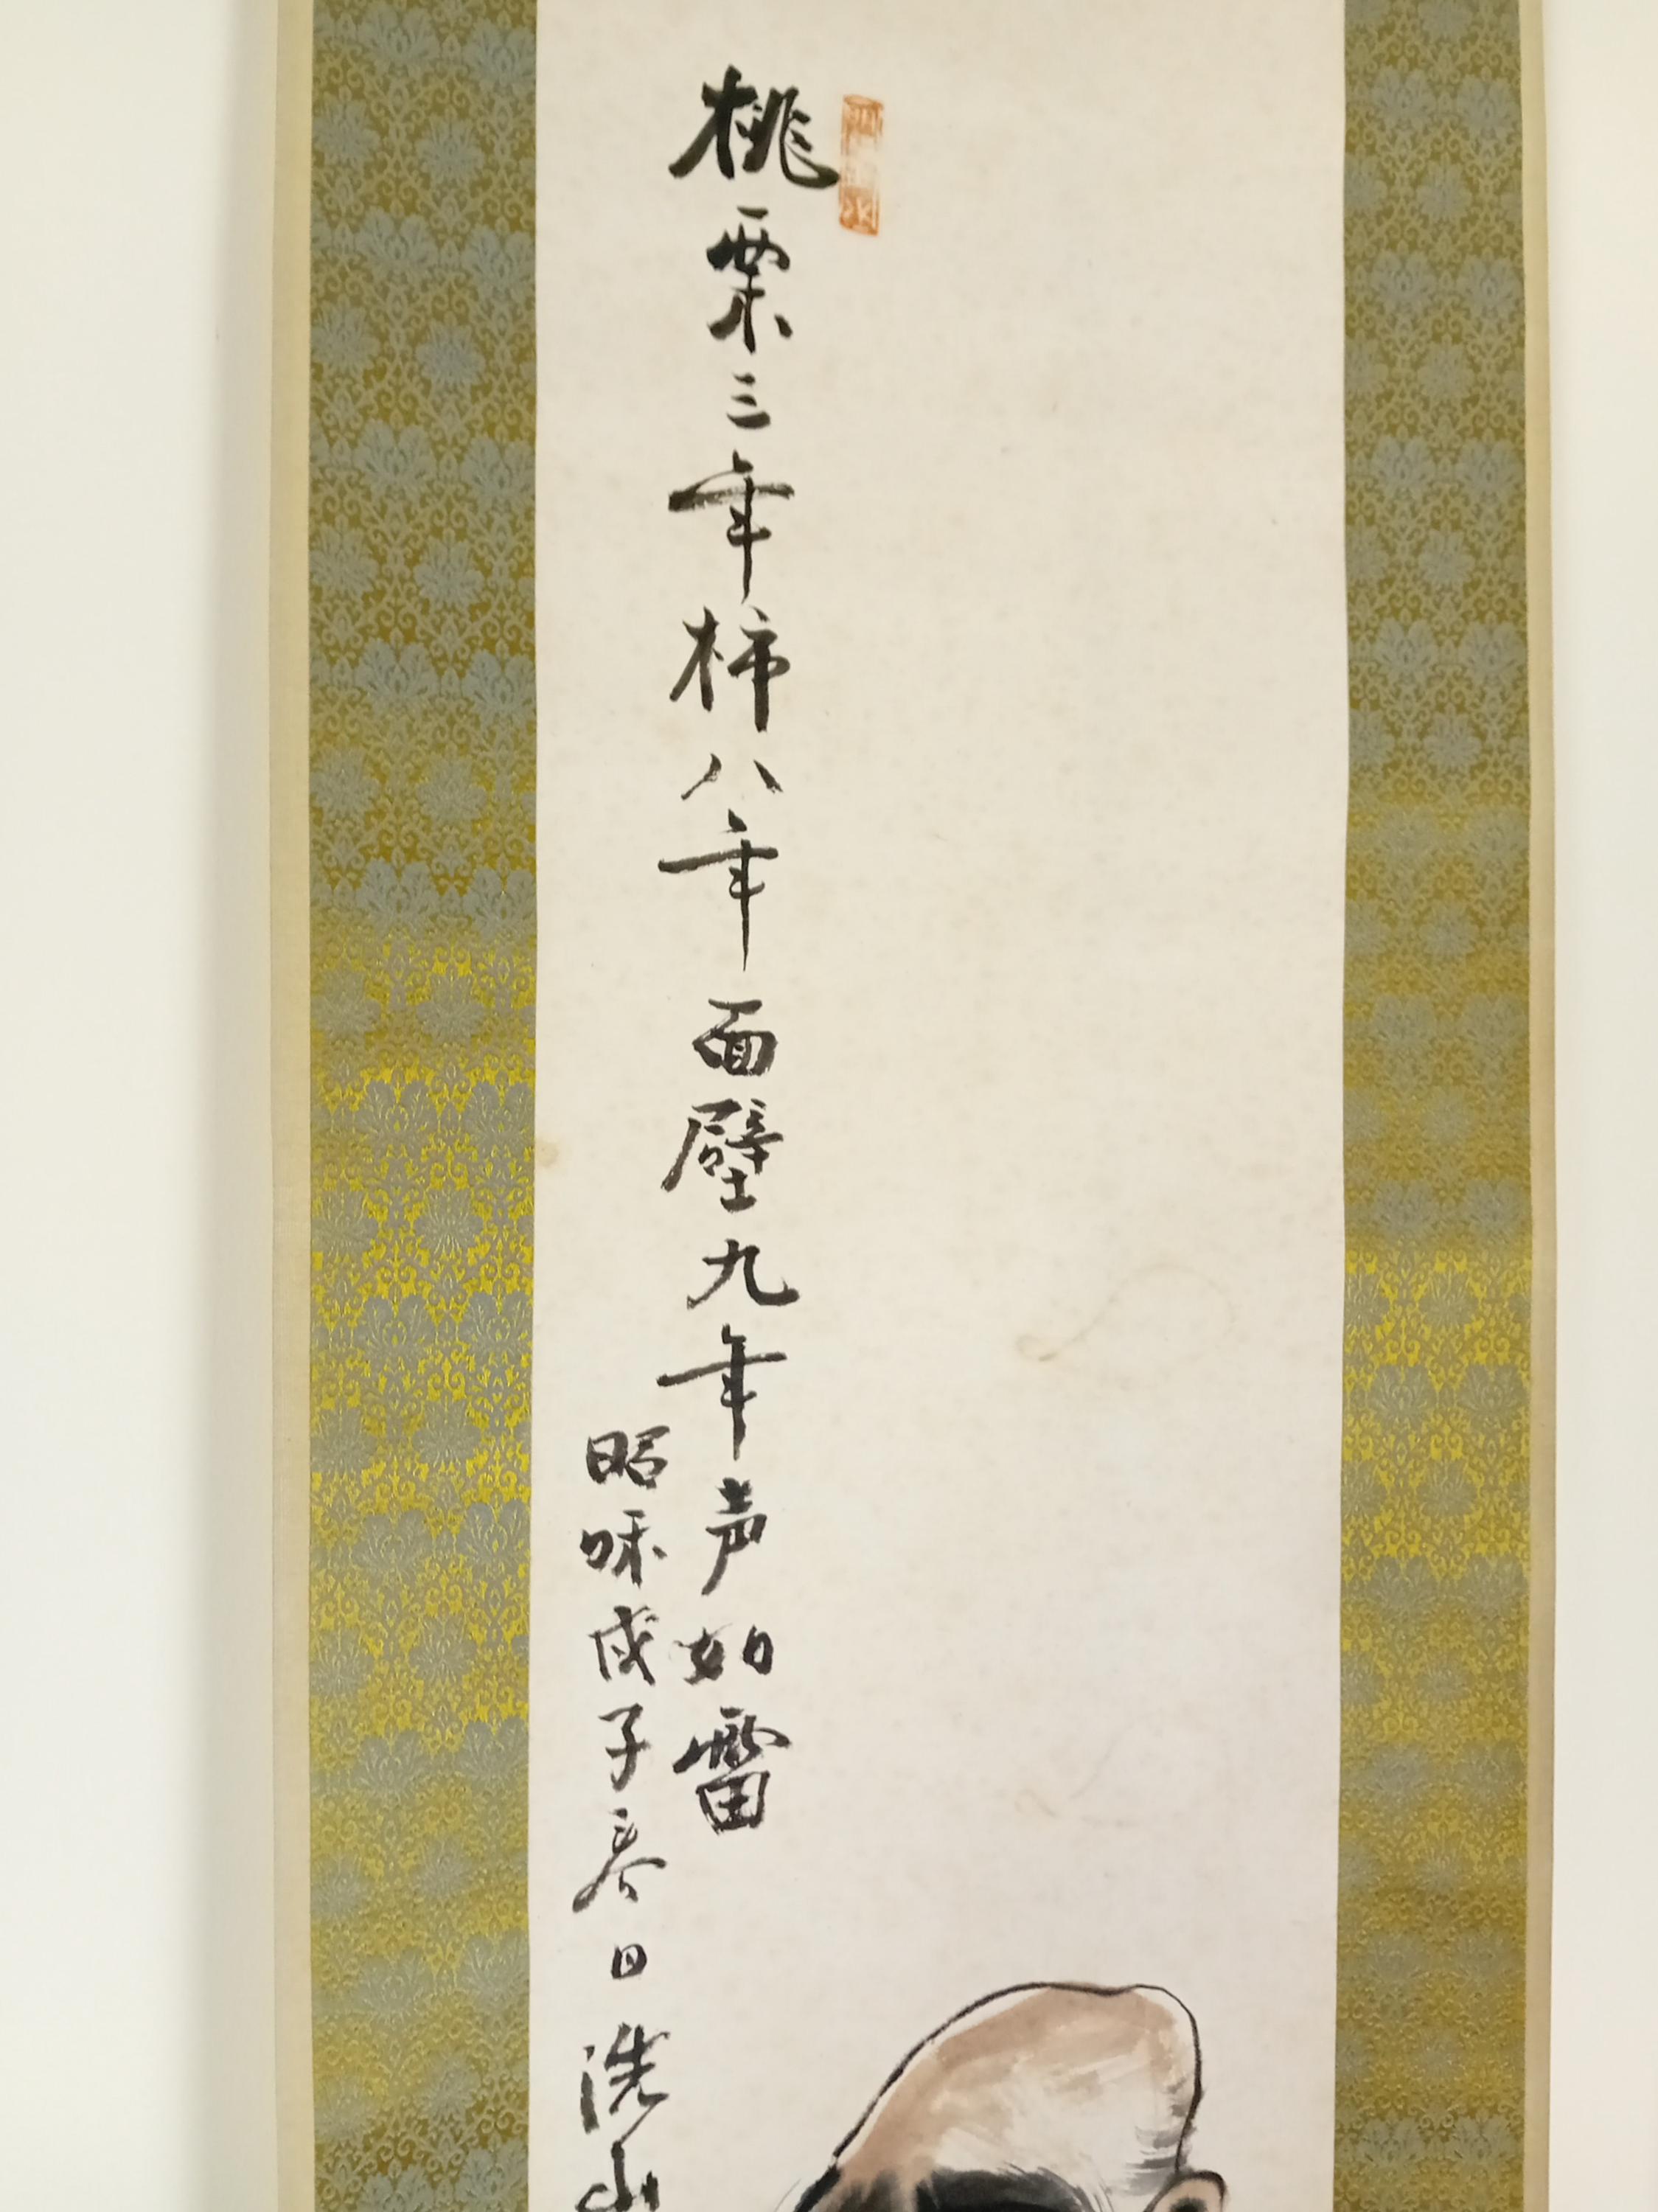 桃栗三年柿八年面壁九年声如雷
昭和戊子春日洗山